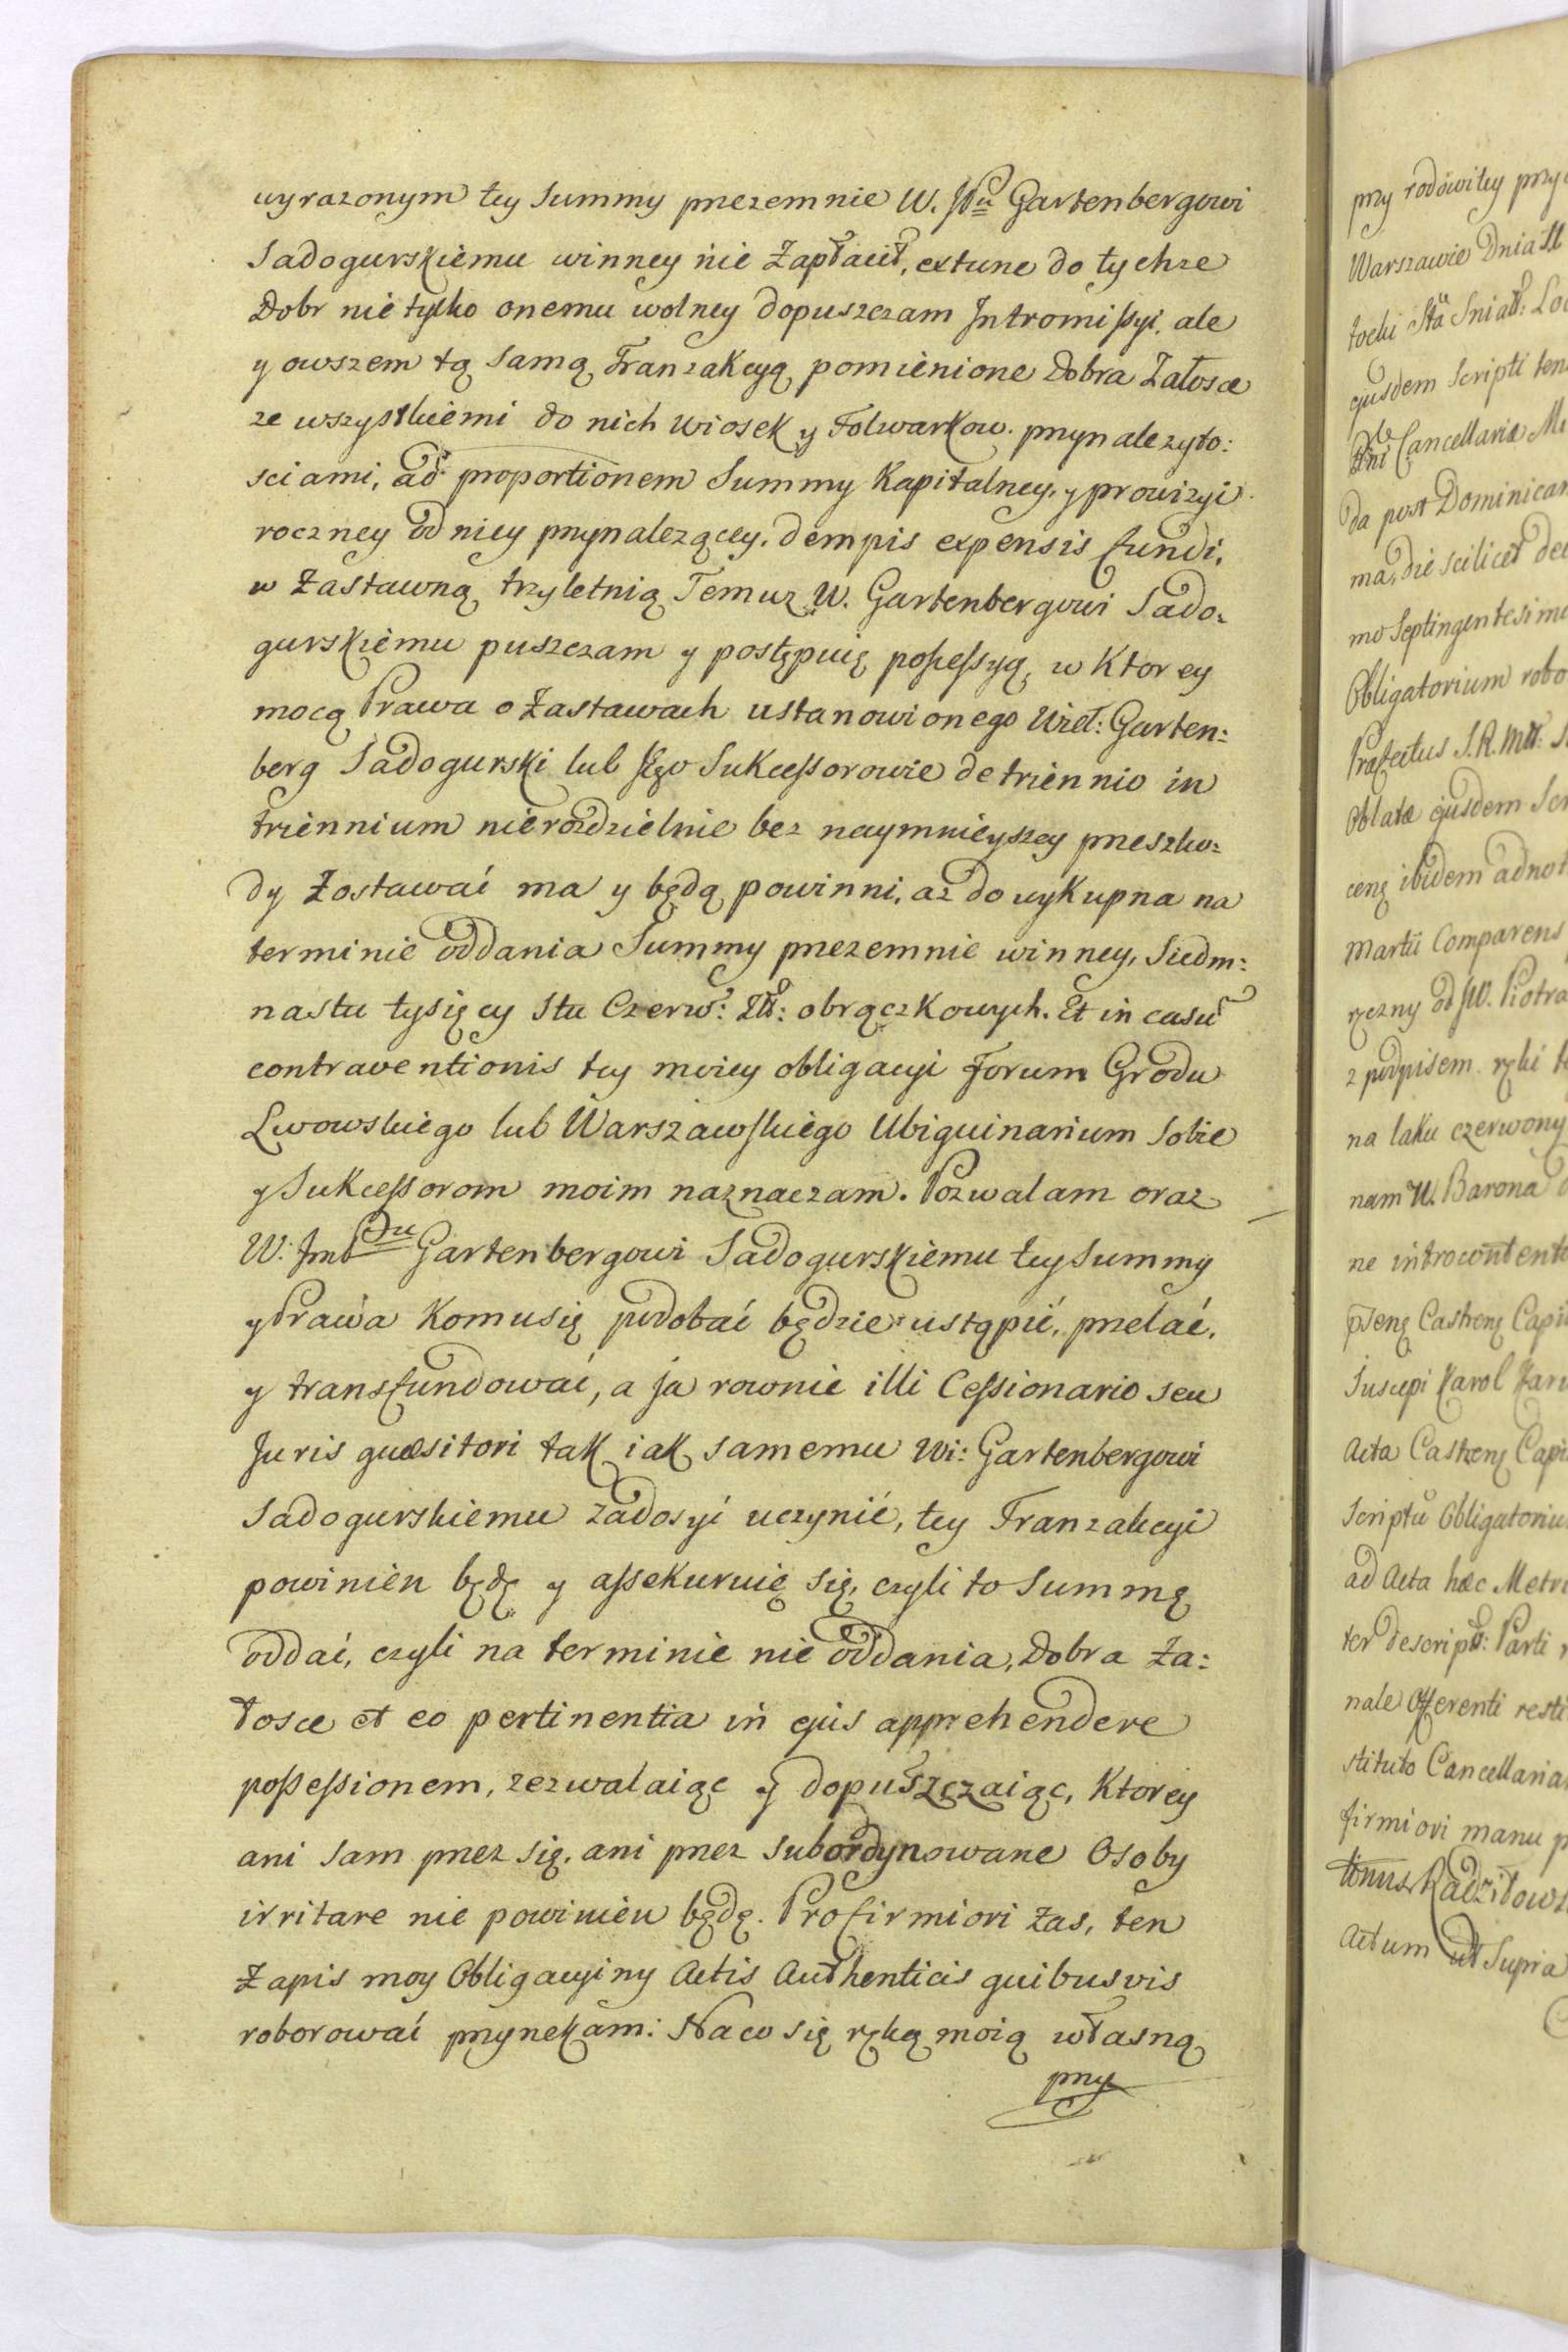 wyrazonym tey Summy przezemnie W. JPu Gartenbergowi
Sadogurskiemu winney nie Zapłacił, extunc do tychze
Dobr nie tylko onemu wolney dopuszczam Intromissyi, ale
y owszem tą samą Tranzakcyą pomienione Dobra Załosce
ze wszystkiemi do nich Wiosek y Folwarkow. przynalezyto:
sciami, ad proportionem Summy Kapitalney, y prowizyi
roczney od niey przynalezącey, demptis expensis fundi,
w Zastawną trzyletnią Temuz W. Gartenbergowi Sado:
gurskiemu puszczam y postępuię possessyą, w Ktorey
mocą Prawa o Zastawach ustanowionego Wiel: Garten:
berg Sadogurski lub Jego Sukcessorowie de triennio in
triennium nierozdzielnie bez naymnieyszey przeszko:
dy Zostawać ma y będą powinni, az do wykupna na
terminie oddania Summy przezemnie winney, Siedm:
nastu tysięcy stu Czerw: Zł: obrączkowych. Et in casu
contraventionis tey moiey obligacyi Forum Grodu
Lwowskiego lub Warszawskiego Ubiquinarium Sobie
y Sukcessorom moim naznaczam. Pozwalam oraz
W: Jmć Pu Gartenbergowi Sadogurskiemu tey Summy
y Prawa Komu się podobać będzie ustąpić, przelać,
y transfundować, a ja rownie illi Cessionario seu
Juris quæsitori tak iak samemu Wi: Gartenbergowi
Sadogurskiemu zadosyć uczynić, tey Tranzakcyi
powinien będę y assekuruię się, czyli to Summę
oddać, czyli na terminie nie oddania, Dobra Za:
łosce et eo pertinentia in ejus apprehendere
possessionem, zezwalaiąc y dopuszczaiąc, Ktorey
ani sam przez się, ani przez subordynowane Osoby
irritare nie powinien będę. Pro firmiori zas, ten
Zapis moy Obligacyiny Actis Authenticis quibusvis
roborować przyrzekam: Na co się ręką moią własną
przy
przy rodowitey przy
Warszawie Dnia
tocki Sta Sniat:
ejusdem Scripti
Cancellariæ
da post Dominicam
ma, die scilicet
mo Septingentesimo
Obligatorium
Præfectus S. R. Mtt:
Oblatæ ejusdem
ibidem
Martii Comparens
ręczny od JW. Piotra
z podpisem ręki
na laku czerwony
nam W. Barona
ne introcontento
Castren
Suscepi Karol
Acta Castren
Scriptu
ad Acta hæc Metri
ter descript: Parti
nale Offerenti resti
stituto Cancellaria
firmiori manu
Radziłow
Actum ut Supra